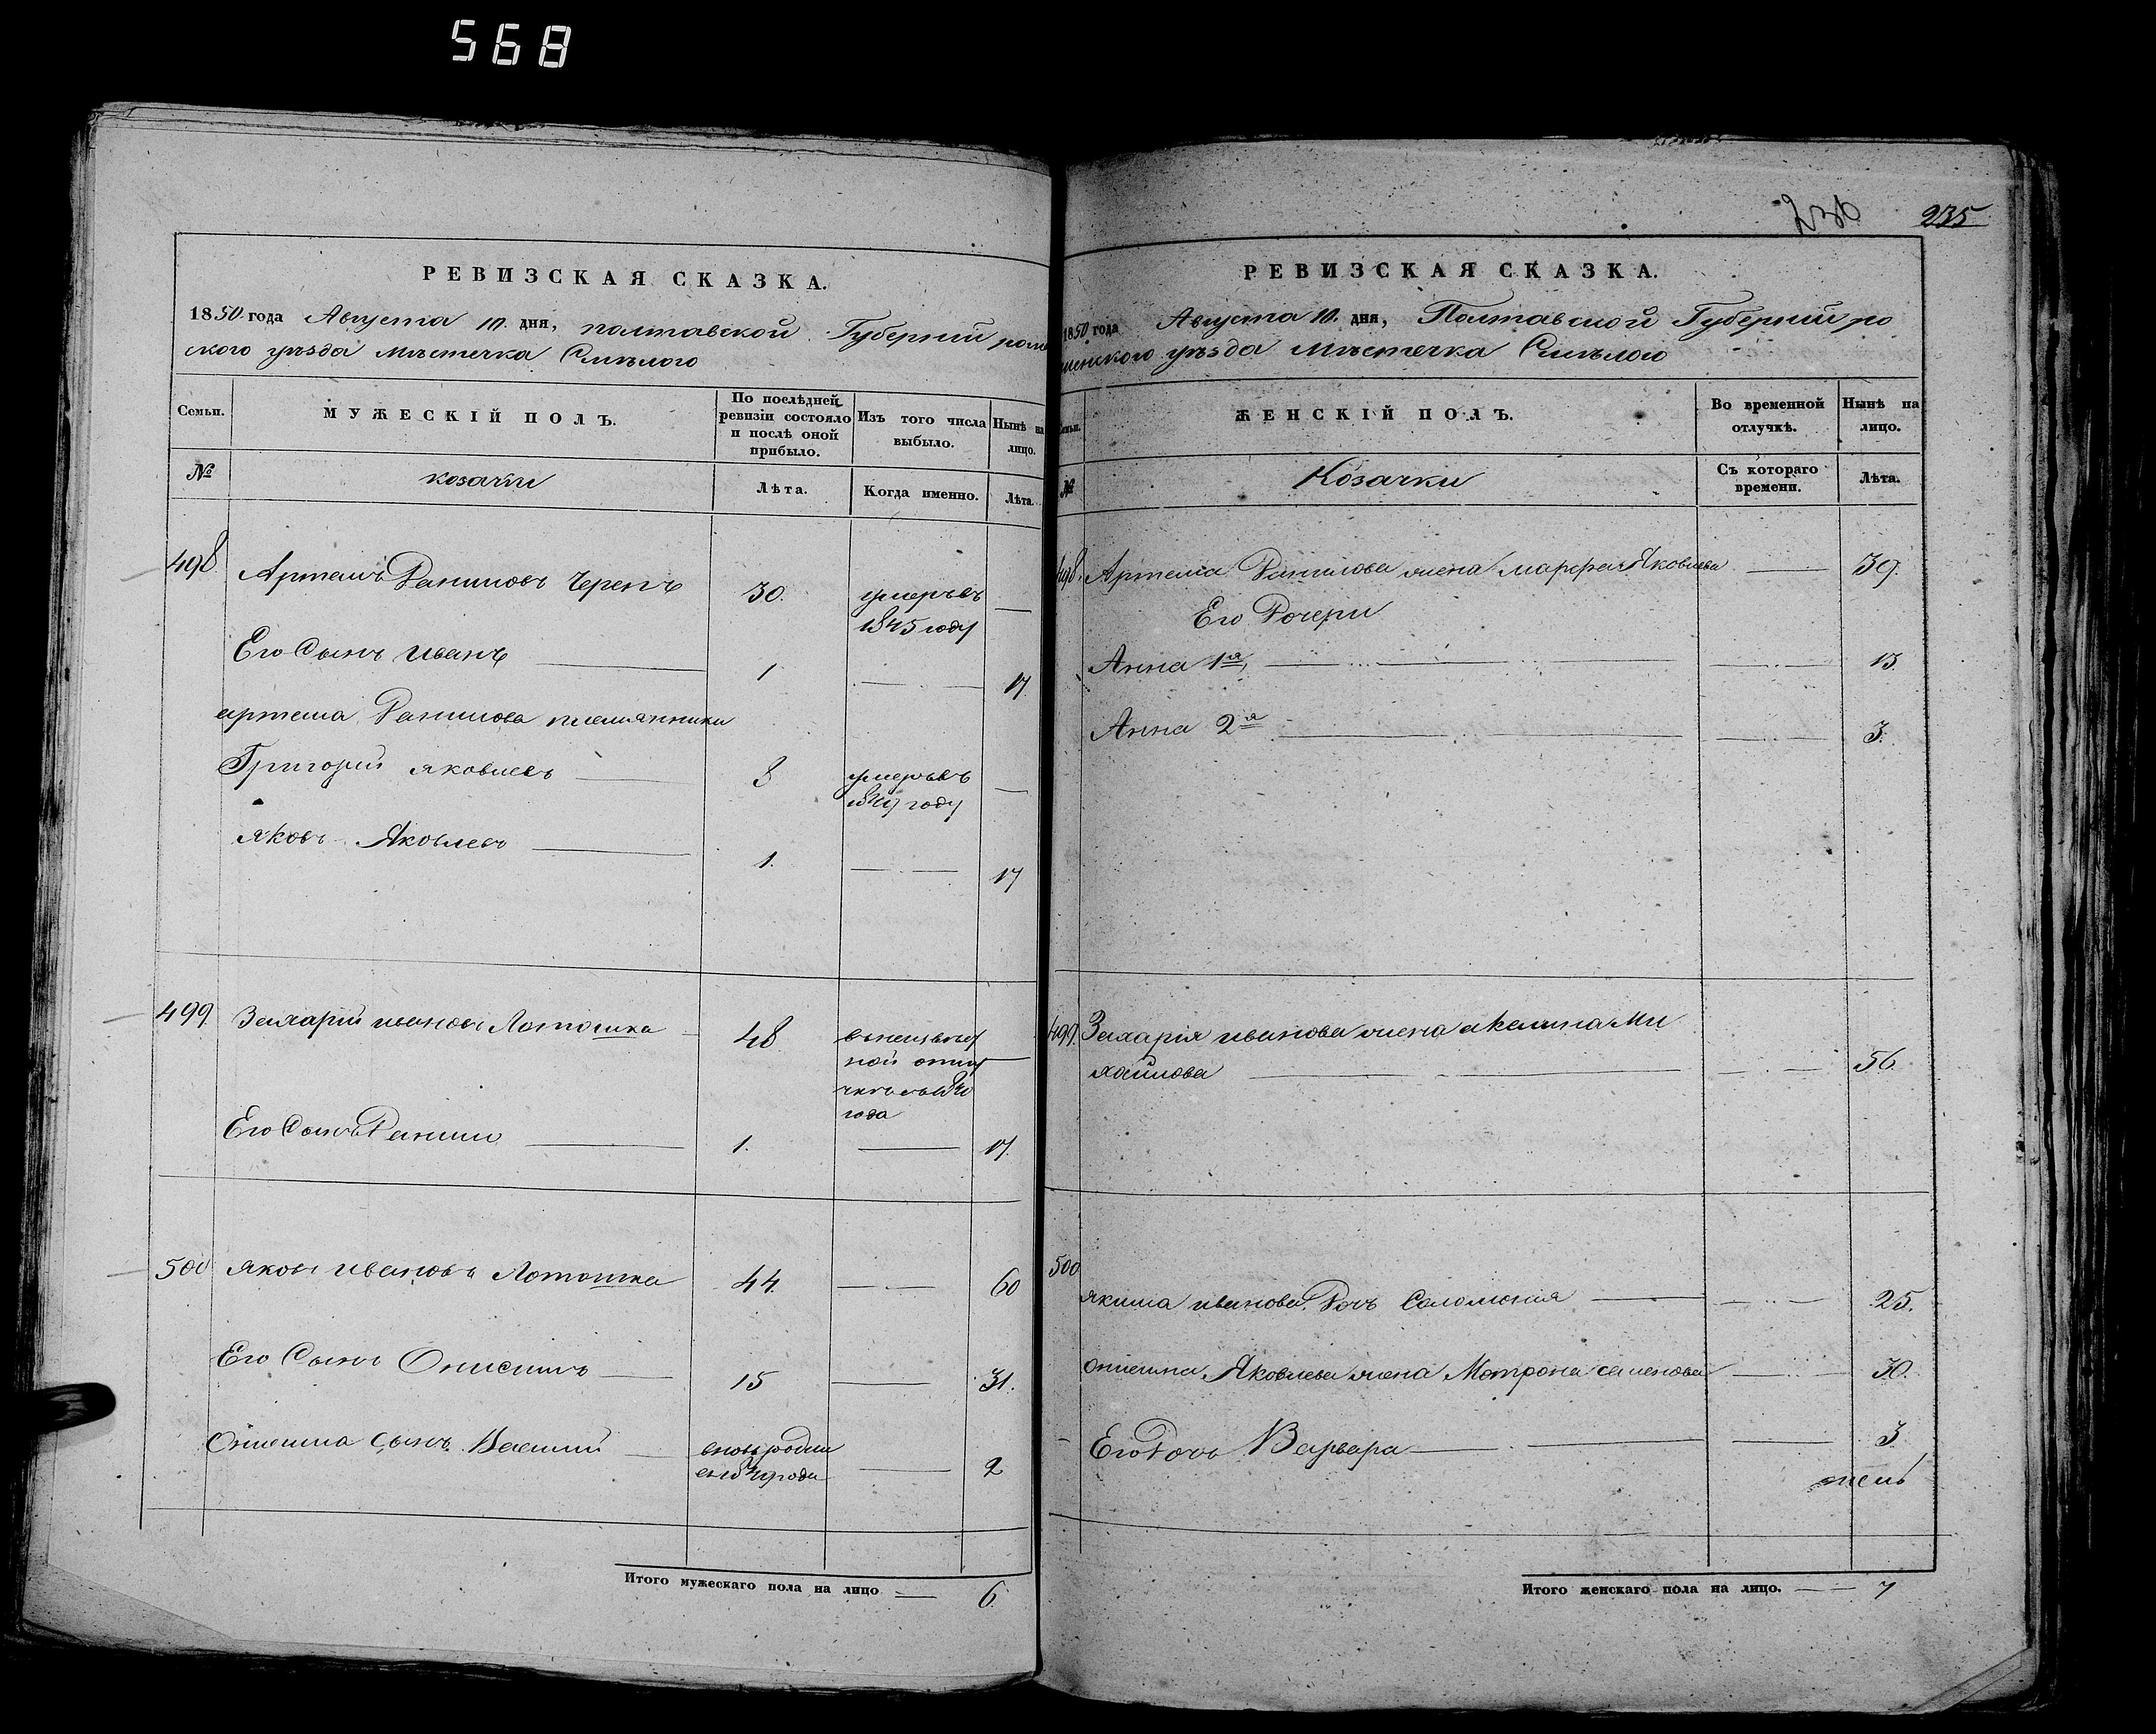 568
РЕВИЗСКАЯ СКАЗКА.
1850 года Августа 10. дня, полтавской Губерний роме
ского уѣзда мѣстечка Смѣлого
Семьи.
МУЖЕСКІЙ ПОЛЪ.
По послѣдней ревизіи состояло и послѣ оной прибыло.
Изъ того числа выбыло.
Нынѣ на лицо.
№
козаки
Лѣта.
Когда именно.
Лѣта.
498 Артемъ Даниловъ Черепъ 30. умеръ въ —
1845 году
Его Сынъ иванъ 1 — 17.
артема Данилова племянники
Григорий яковлевъ 8 умеръ въ —
году
яковъ Яковлевъ 1. — 17
499. Захарий ивановъ Лотошка 48
ной
года
Его Сынъ Данило 1. — 17.
500 яковъ ивановъ Лотошка 44. — 60
Его Сынъ Онисимъ 15 — 31.
Онисима сынъ Василий — 2
Итого мужескаго пола на лицо — 6.
236 235
РЕВИЗСКАЯ СКАЗКА.
1850 года Августа 10. дня, Полтавской Губерний ро
менского уѣзда мѣстечка Смѣлого
Семьи.
ЖЕНСКІЙ ПОЛЪ.
Во временной отлучкѣ.
Нынѣ на лицо.
№
Козачки
Съ котораго времени.
Лѣта.
498. Артема Данилова жена марфа Яковлева — 39.
Его Дочери
Анна 1я, — 13.
Анна 2я — 3.
499. Захарія иванова жена акелина Ми
хайлова — 56.
500
якима иванова Дочь Соломония — 25.
онисима Яковлева жена Мотрона семенова — 30.
Его Дочь Варвара — 3
Итого женскаго пола на лицо. — 7